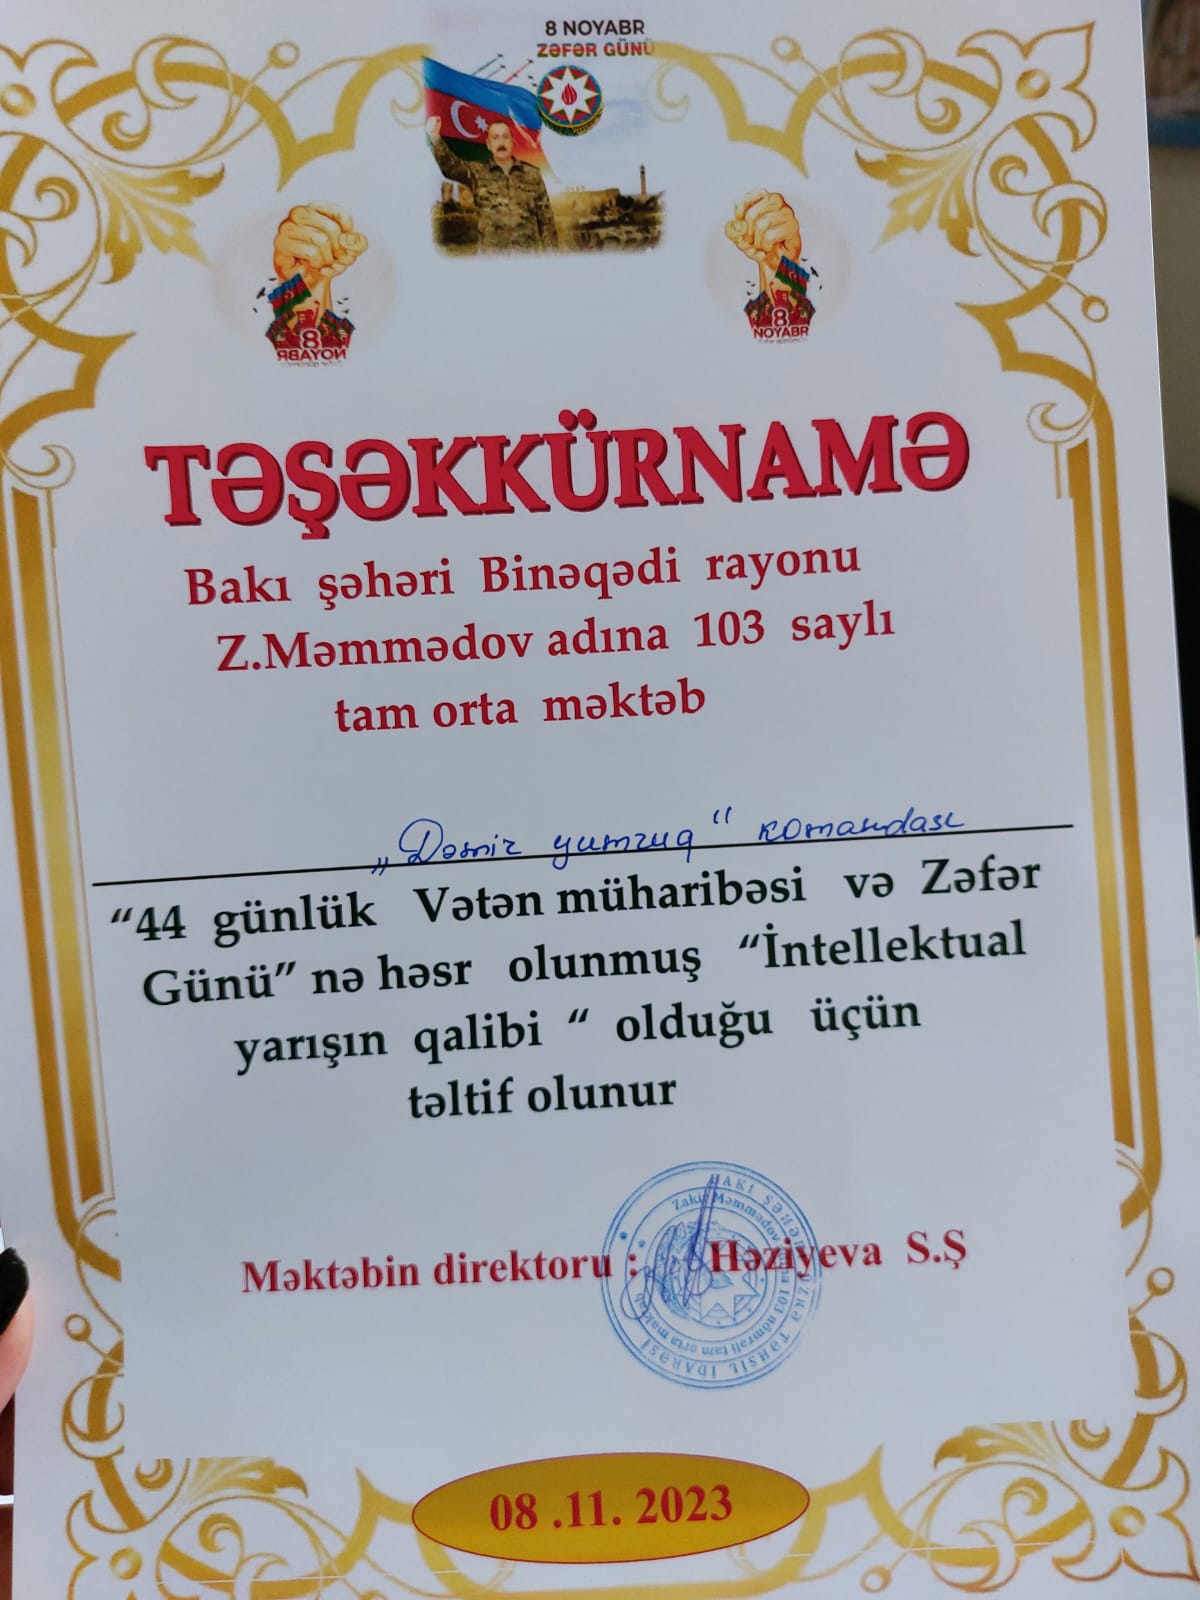 8 NOYABR
ZƏFƏR GÜNÜ
8
NOYABR
8
NOYABR
TƏŞƏKKÜRNAMƏ
Bakı şəhəri Binəqədi rayonu
Z.Məmmədov adına 103 saylı
tam orta məktəb
„Dəmir yumruq" komandası
“44 günlük Vətən müharibəsi və Zəfər
Günü” nə həsr olunmuş “İntellektual
yarışın qalibi “ olduğu üçün
təltif olunur
Məktəbin direktoru : Həziyeva S.Ş
BAKI ŞƏHƏRİ ÜZRƏ TƏHSİL İDARƏSİ
Zakir Məmmədov adına 103 nömrəli tam orta məktəb
08 .11. 2023